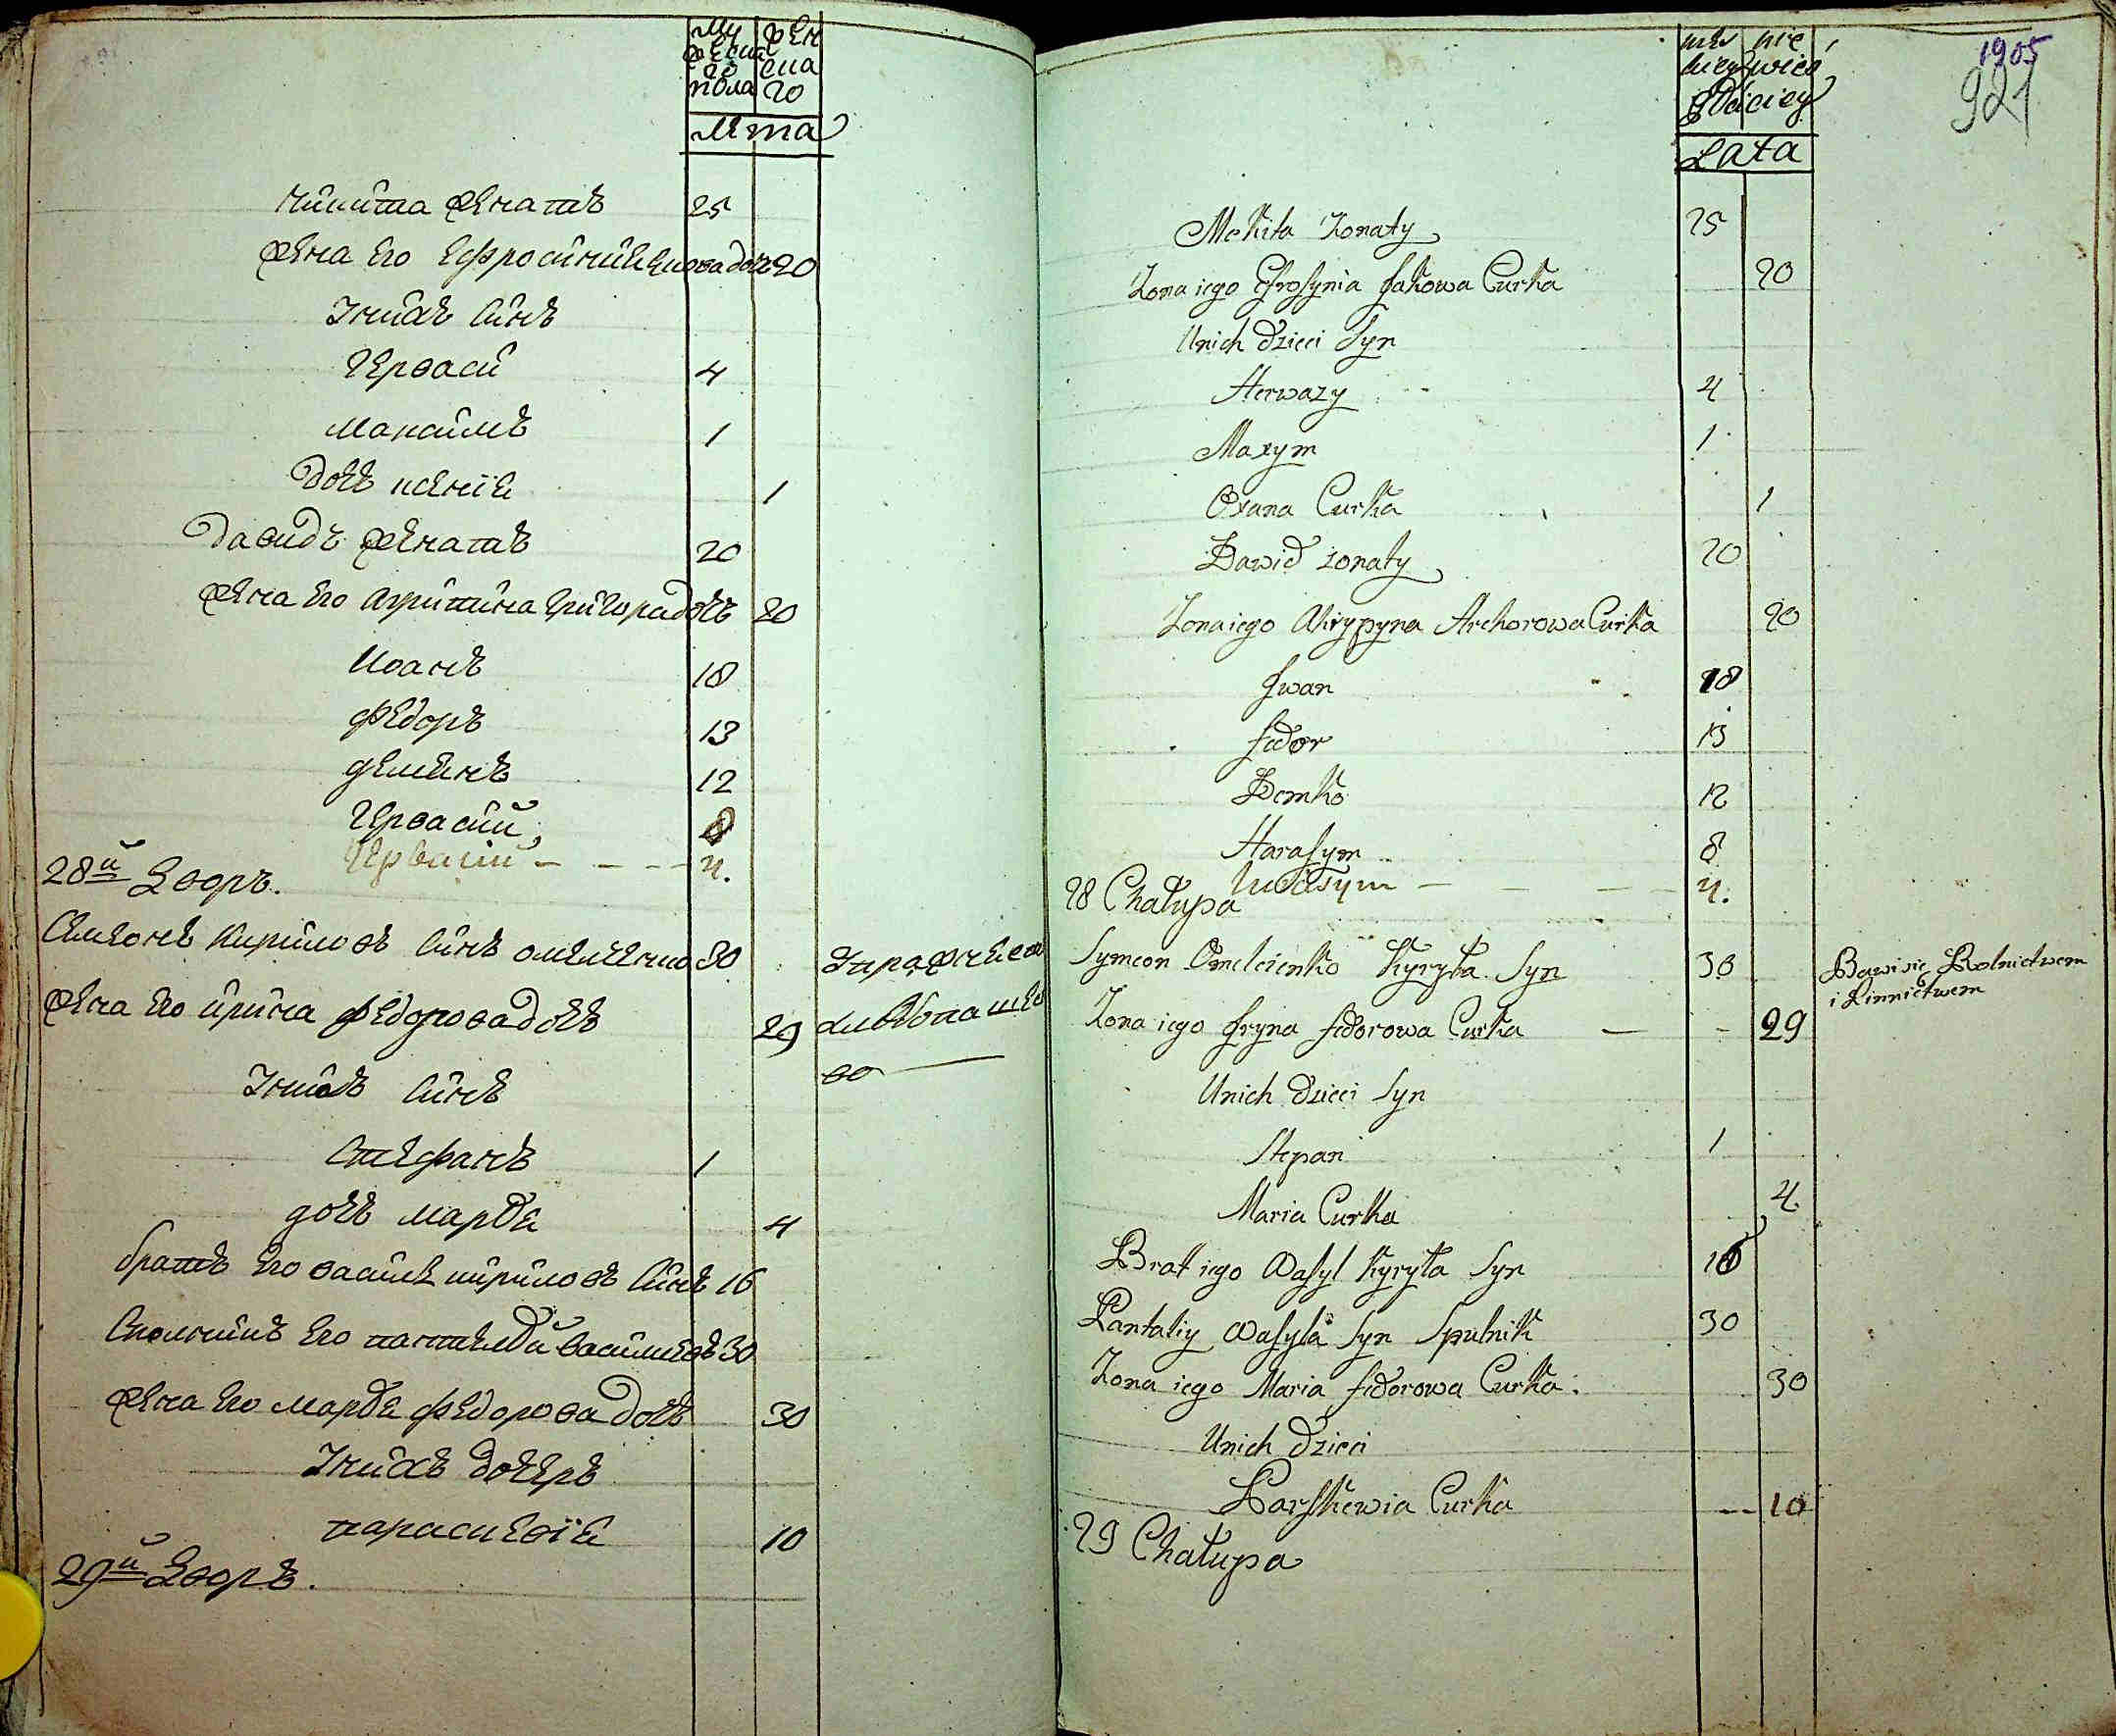 му
жеска
го
пола
жен
ска
го
лѣта
никита женатъ 25
жена его ефросиния яковадочь 20
Унихъ синъ
Герваси 4
Максимъ 1
дочь ксения 1
давидъ женатъ 20
жена его агрипина григорадочь 20
Иоанъ 18
федоръ 13
демянъ 12
Гервасий 8
Гервасій 4.
28й Дворъ.
Симеонъ Кириловъ синъ омелченко 30
жена его ирина федоровадочь 29
Унихъ синъ
стефанъ 1
дочь марья 4
братъ его василь кириловъ синъ 16
Сполникъ его пантелей василиевъ 30
жена его марья федоровадочь 30
Унихъ дочерь
параскевия 10
29й Дворъ.
Упражняеся
хлебопашес
во
1905
921
Lata
Mekita Zonaty 25
Zona iego Efrosynia Jakowa Curka 20
Unich dzieci Syn
Herwazy 4
Maxym 1
Oxana Curka 1
Dawid zonaty 20
Zona iego Akrypyna Arehorowa Curka 20
Iwan 18
fedor 13
Demko 12
Harasym 8
4.
28 Chałupa
Symeon Omelczenko Kyryła Syn 30
Zona iego Iryna fedorowa Curka 29
Unich dzieci Syn
Stepan 1
Maria Curka 4
Brat iego Wasyl Kyryła Syn 16
Pantaliy Wasyla Syn Spulnik 30
Zona iego Maria fedorowa Curka. 30
Unich dzieci
Parskewia Curka 10
29 Chałupa
Bawi sie Rolnictwem
i Linnictwem